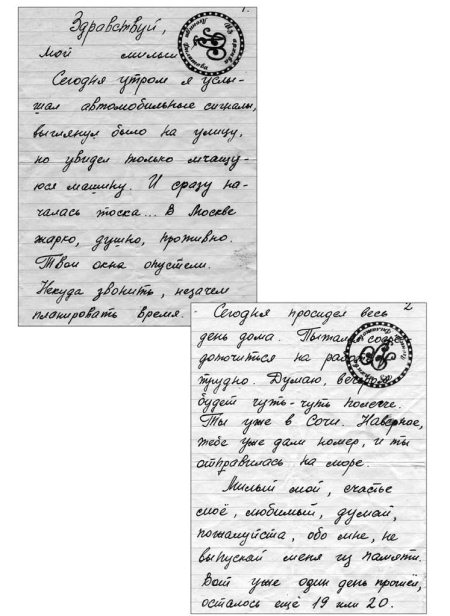 1.
Здравствуй,
мой милый
Сегодня утром я услы-
шал автомобильные сигналы,
выглянул было на улицу,
но увидел только мчащу-
юся машину. И сразу на-
чалась тоска... В Москве
жарко, душно, противно.
Твои окна опустели.
Некуда звонить, незачем
планировать время.
2
Сегодня просидел весь
день дома. Пытался
доточиться на
трудно. Думаю, вечером
будет чуть-чуть полегче.
Ты уже в Сочи. Наверное,
тебе уже дали номер, и ты
отправилась на море.
Милый мой, счастье
моё, любимый, думай,
пожалуйста, обо мне, не
выпускай меня из памяти.
Вот уже один день прошёл,
осталось ещё 19 или 20.